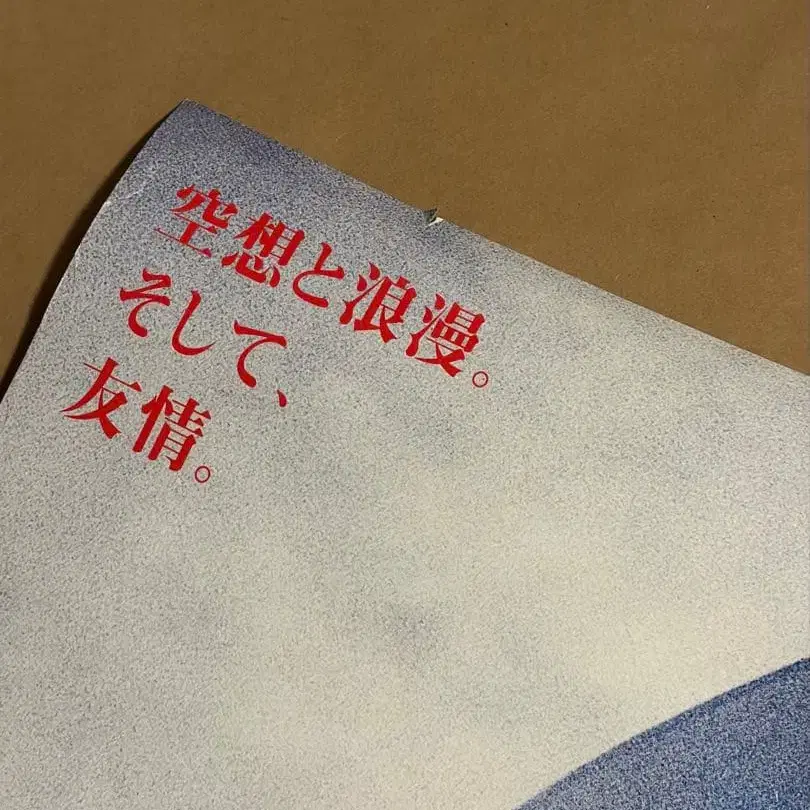 空想と浪漫。
そして、
友情。